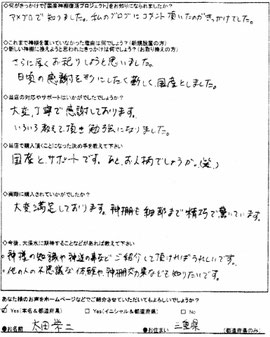 ◇何がきっかけで『国産神棚復活プロジェクト』をお知りになられましたか？
アメブロで知りました。私のブログにコメント頂いたのがきっかけでした。
◇これまで神様を置いていなかった理由は何でしょう？（新規設置の方）
◇新しい神棚に換えようと思われたきっかけは何でしょう？（お取り換えの方）
さらに厚くお祀りしようと思いました。
日頃の感謝を形にしたく新しく国産としました。
◇当店の対応やサポートはいかがでしたでしょうか？
大変、丁寧で感謝しております。
いろいろ教えて頂き勉強になりました。
◇当店で購入頂くことになった決め手を教えて下さい
国産とサポートです。あと、お人柄でしょうか。(笑)
◇実際に購入されていかがでしたか？
大変満足しております。神棚も細部まで精巧で驚いています。
◇今後、大浜木に期待することなどがあれば教えて下さい
・神様の知識や神道の事などご紹介して頂ければうれしいです。
・他の人の不思議な体験や神棚効果なども知りたいです。
あなた様のお声をホームページなどでご紹介させていただいてもよろしいでしょうか？
Yes(本名＆都道府県) □Yes(イニシャル＆都道府県) □No
●お名前 太田 ●お住まい 三重県 (都道府県のみ)